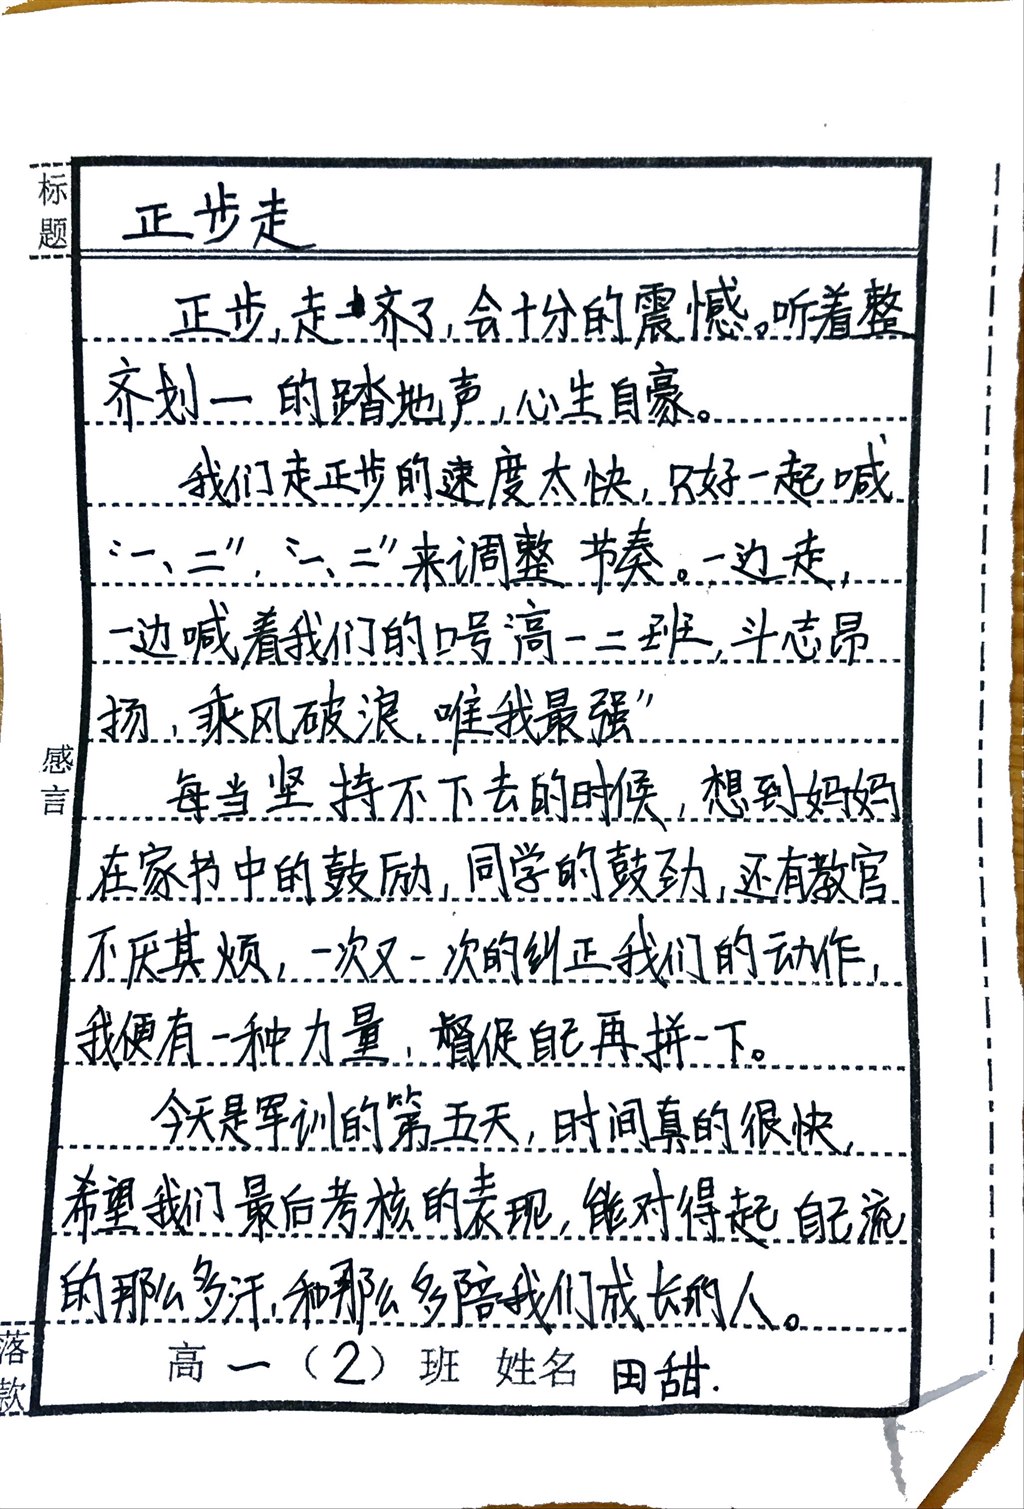 标题
正步走
正步,走齐了,会十分的震憾。听着整
齐划一的踏地声,心生自豪。
我们走正步的速度太快,只好一起喊
“一、二”,“一、二”来调整节奏。一边走,
一边喊着我们的口号“高一二班,斗志昂
扬,乘风破浪,唯我最强”
感言
每当坚持不下去的时候,想到妈妈
在家书中的鼓励,同学的鼓劲,还有教官
不厌其烦,一次又一次的纠正我们的动作,
我便有一种力量,督促自己再拼一下。
今天是军训的第五天,时间真的很快,
希望我们最后考核的表现,能对得起自己流
的那么多汗,和那么多陪我们成长的人。
落款
高一(2)班 姓名 田甜.